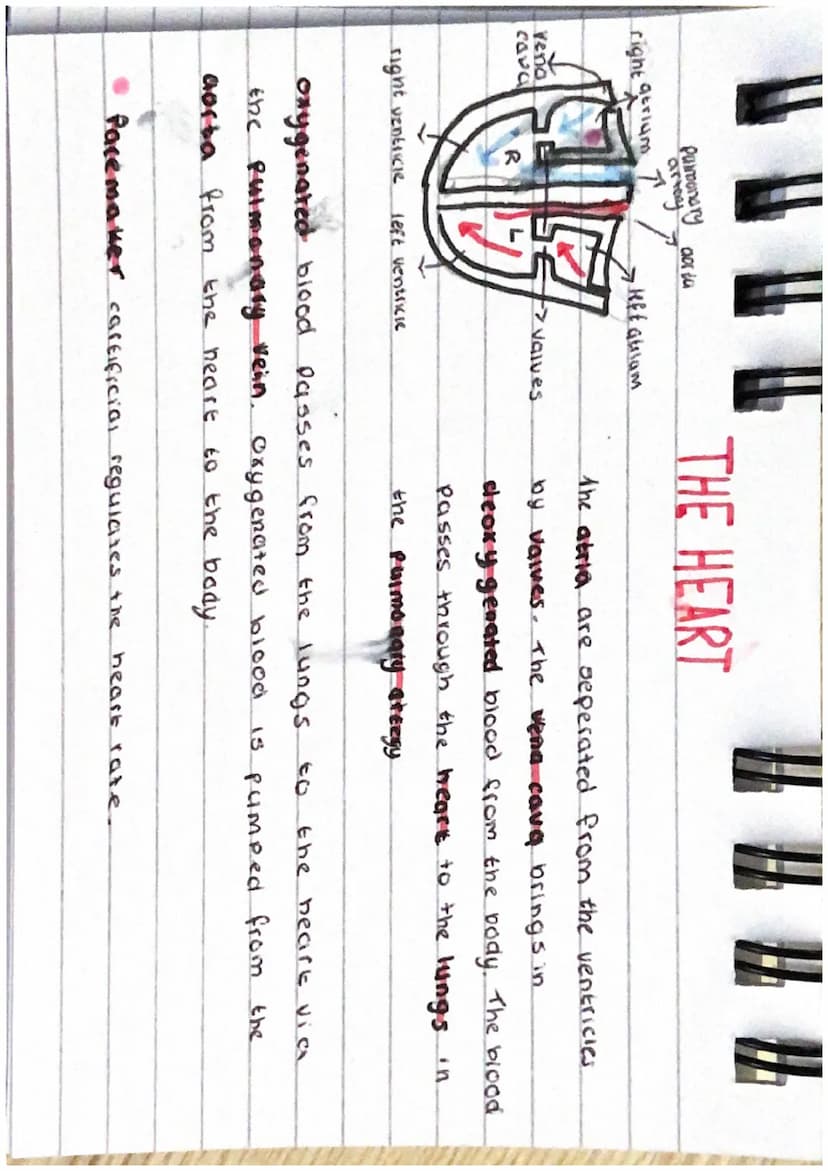 THE HEART
pulmonary
artery
aorta
right atrium
left atrium
vena
cava
R
L
valves
right ventricle
left ventricle
The atria are seperated from the ventricles
by valves. The vena cava brings in
deoxygenated blood from the body. The blood
passes through the heart to the lungs in
the pulmonary artery
oxygenated blood passes from the lungs to the heart via
the pulmonary vein. oxygenated blood is pumped from the
aorta from the heart to the body.
Pacemaker (artificial regulates the heart rate.